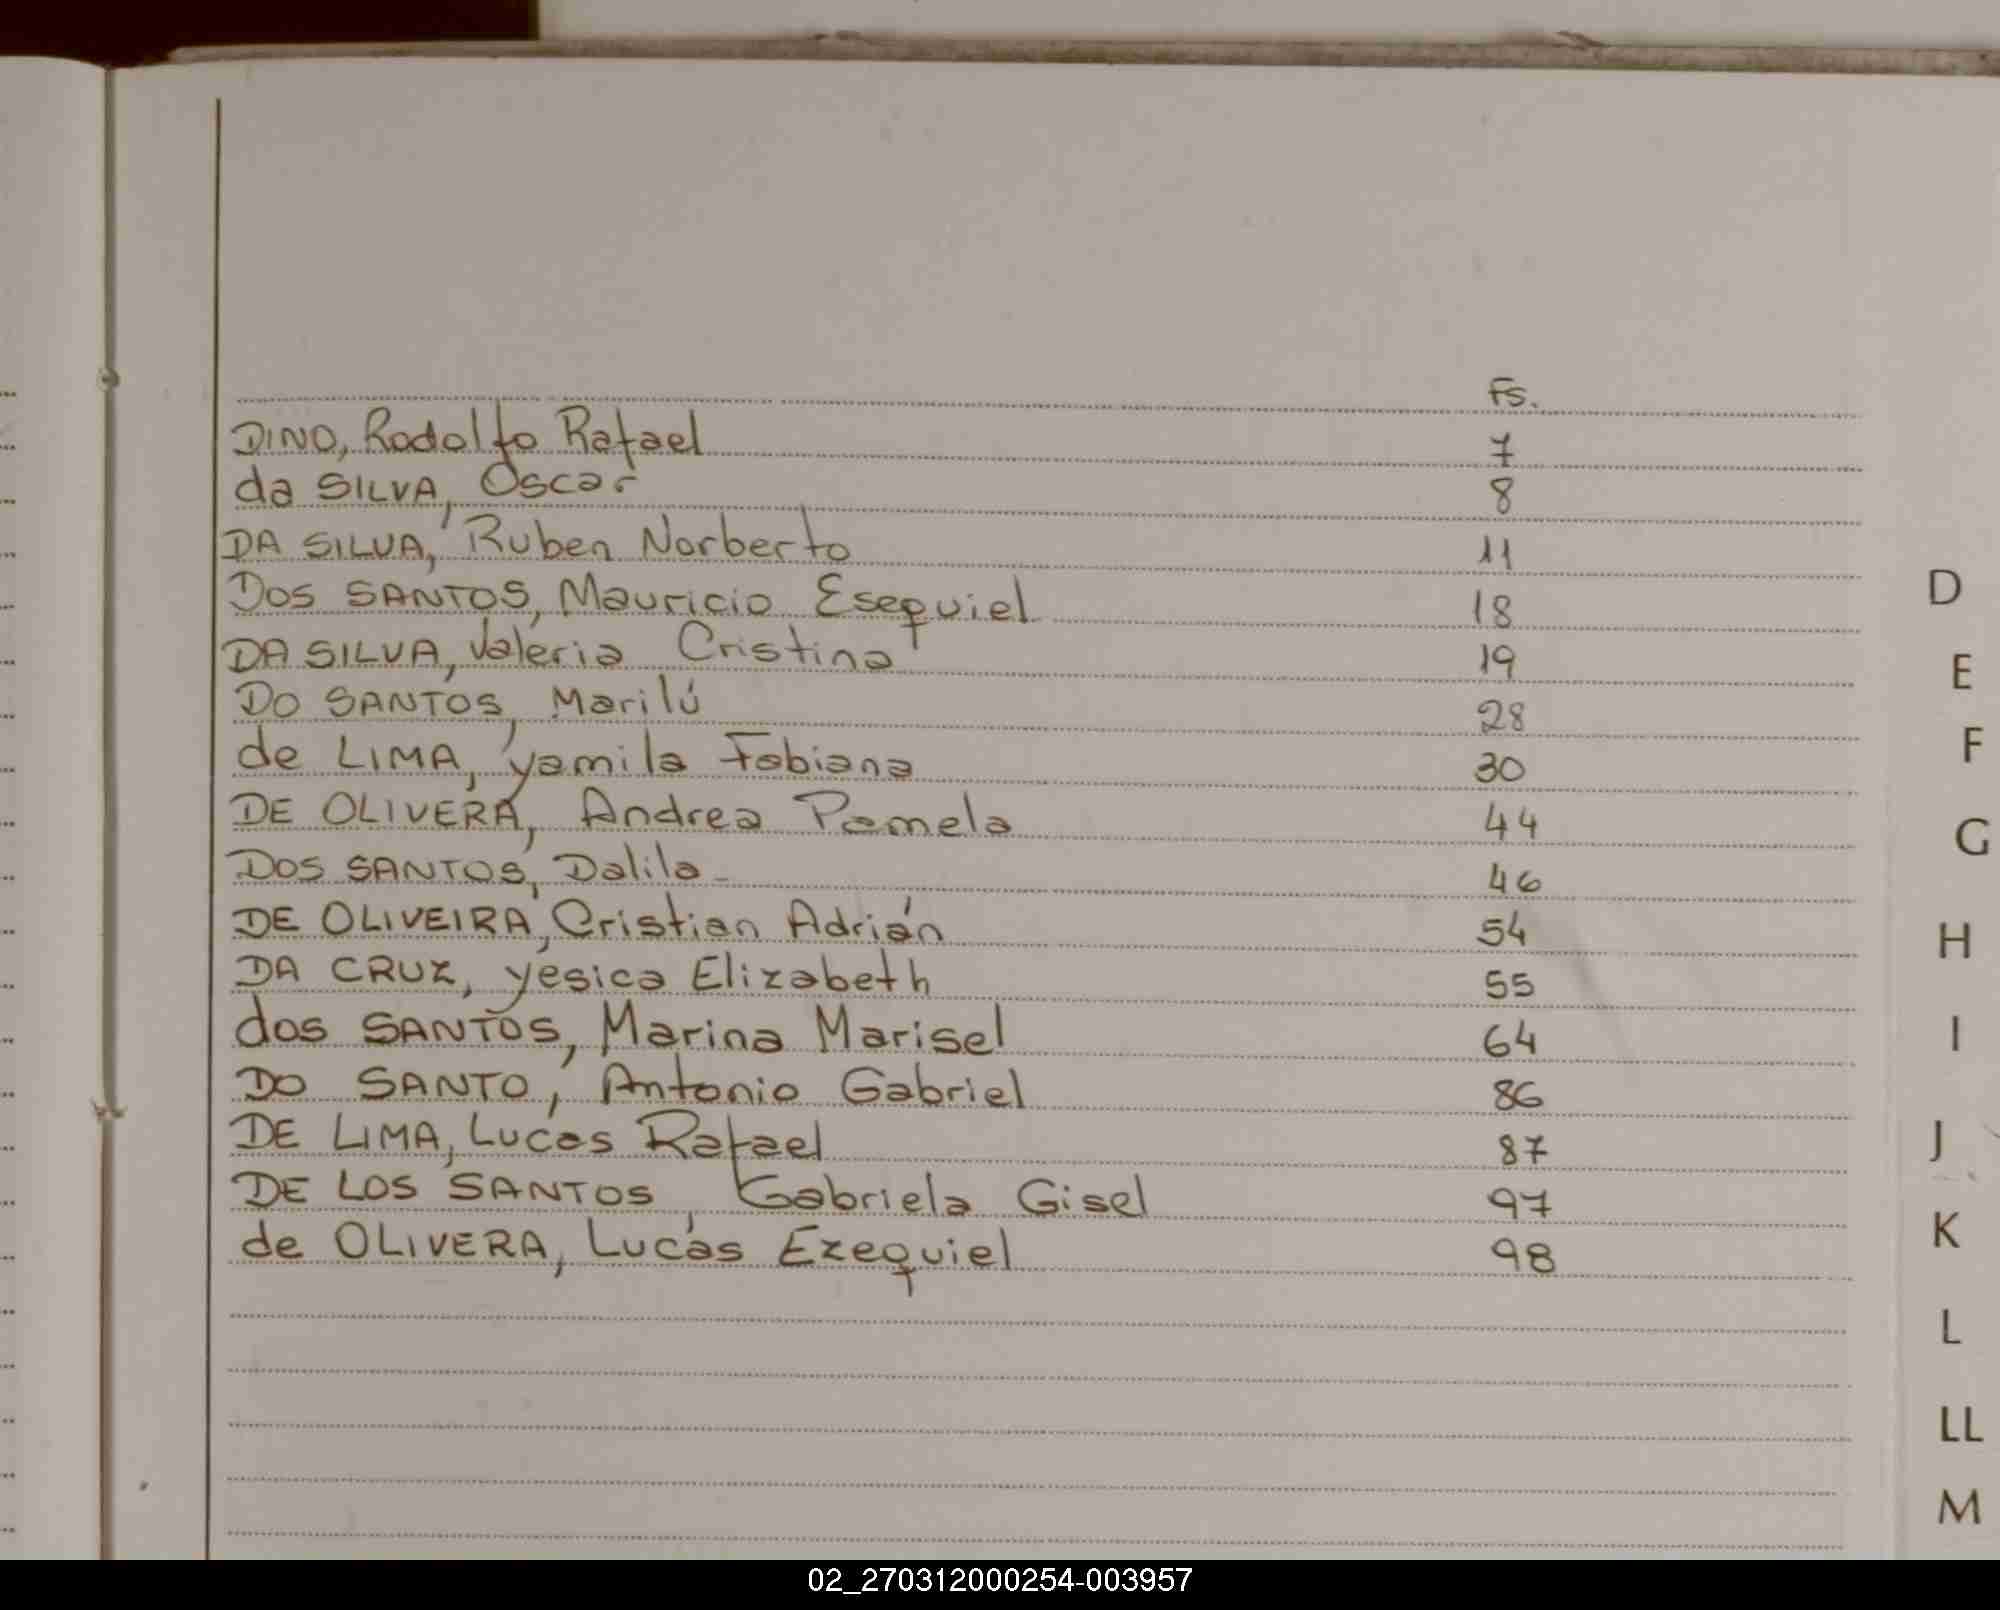 Fs.
DINO, Rodolfo Rafael 7
da SILVA, Oscar 8
DA SILVA, Ruben Norberto 11
DOS SANTOS, Mauricio Esequiel 18
DA SILVA, Valeria Cristina 19
DO SANTOS, Marilú 28
de LIMA, Yamila Fabiana 30
DE OLIVERA, Andrea Pamela 44
DOS SANTOS, Dalila 46
DE OLIVEIRA, Cristian Adrián 54
DA CRUZ, Yesica Elizabeth 55
dos SANTOS, Marina Marisel 64
DO SANTO, Antonio Gabriel 86
DE LIMA, Lucas Rafael 87
DE LOS SANTOS, Gabriela Gisel 97
de OLIVERA, Lucas Ezequiel 98
D
E
F
G
H
I
J
K
L
LL
M
02_270312000254-003957